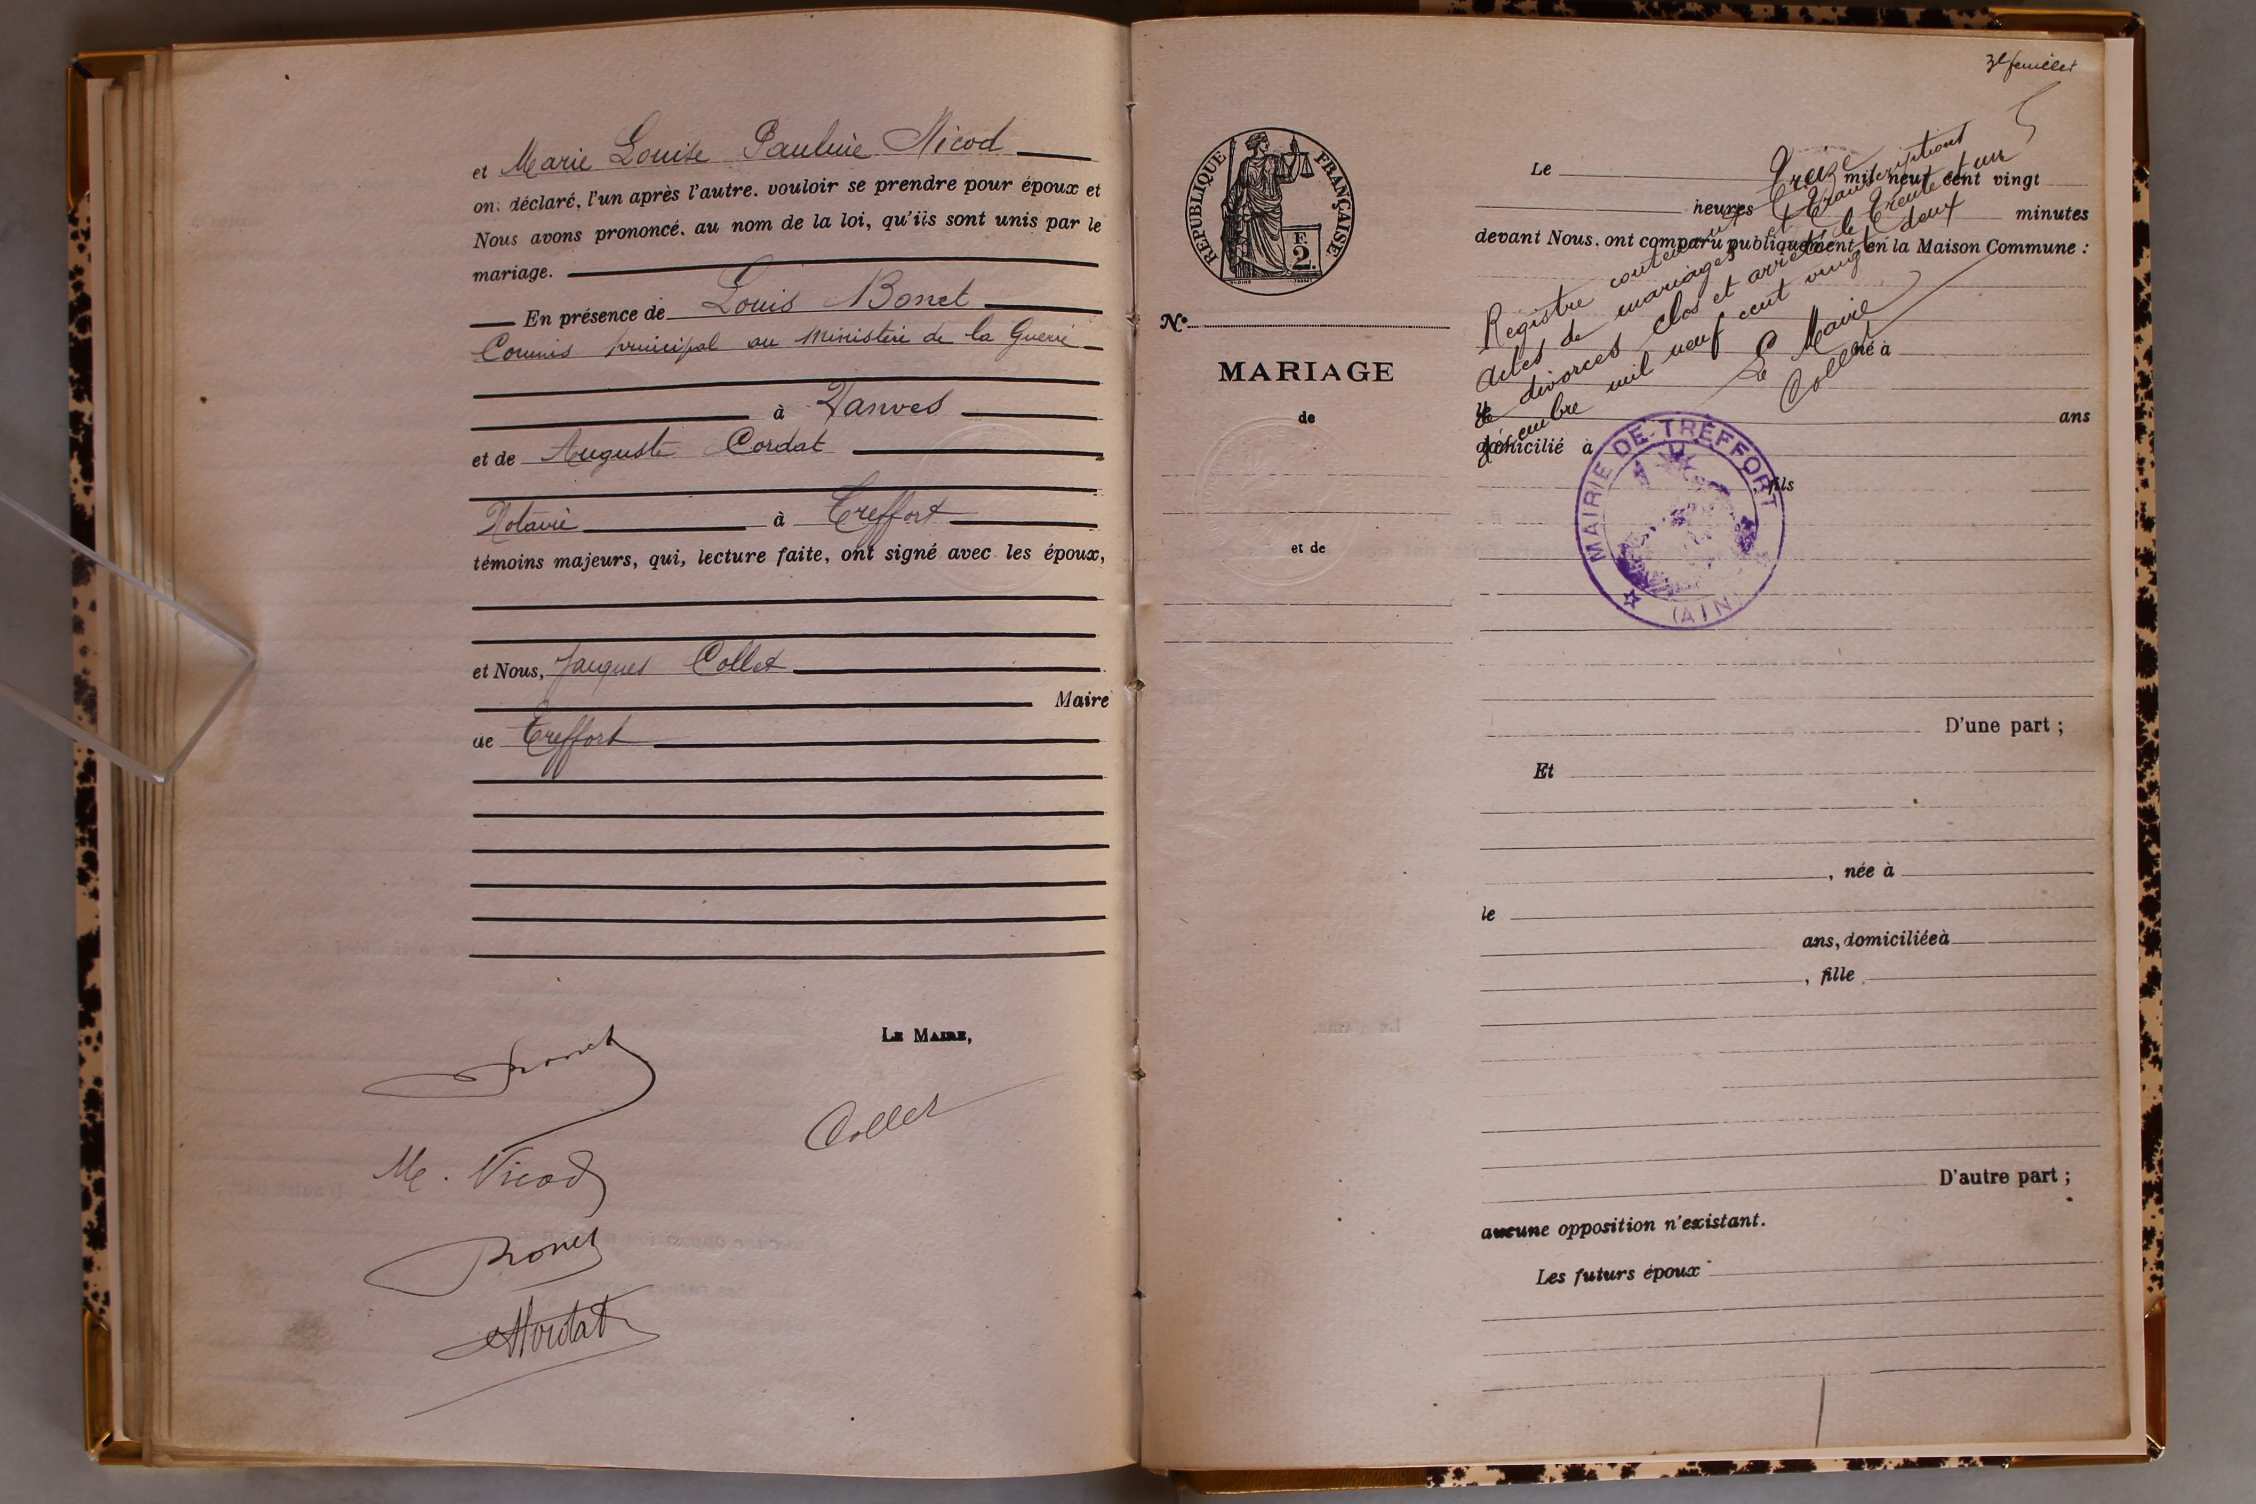 et Marie Louise Pauline Nicod
ont déclaré, l'un après l'autre. vouloir se prendre pour époux et
Nous avons prononcé, au nom de la loi, qu'ils sont unis par le
mariage.
En présence de Louis Bonet
Commis principal au Ministère de la Guerre
à Vanves
et de Auguste Cordat
Notaire à Treffort
témoins majeurs, qui, lecture faite, ont signé avec les époux,
et Nous, Jacques Collet
Maire
de Treffort
LE MAIRE,
Bonet
Collet
M. Nicod
Bonet
ACordat
3e feuillet
RÉPUBLIQUE FRANÇAISE
F.
2.
N°
MARIAGE
de
et de
Le mil neuf cent vingt
heures minutes
devant Nous, ont comparu publiquement en la Maison Commune :
né à
le ans
domicilié à
, fils
Registre contenant Treize
actes de mariages et transcriptions
de divorces clos et arrêté le trente et un
décembre mil neuf cent vingt deux
Le Maire
Collet
MAIRIE DE TREFFORT
(AIN)
D'une part ;
Et
, née à
le
ans, domiciliée à
, fille
D'autre part ;
aucune opposition n'existant.
Les futurs époux